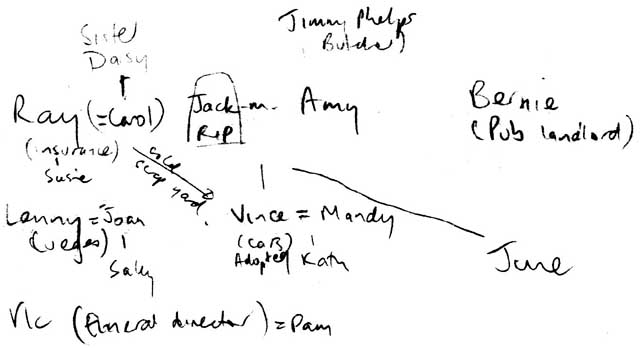 Jimmy Phelps
Butcher)
Sister
Daisy
Ray (=Carol) Jack -m- Amy
R.I.P
Bernie
(Pub landlord)
(insurance)
Susie
sold
scrap yard
Lenny = Joan
(veges)
Sally
Vince = Mandy
(cars)
Adopted Kath
June
Vic (funeral director) = Pam